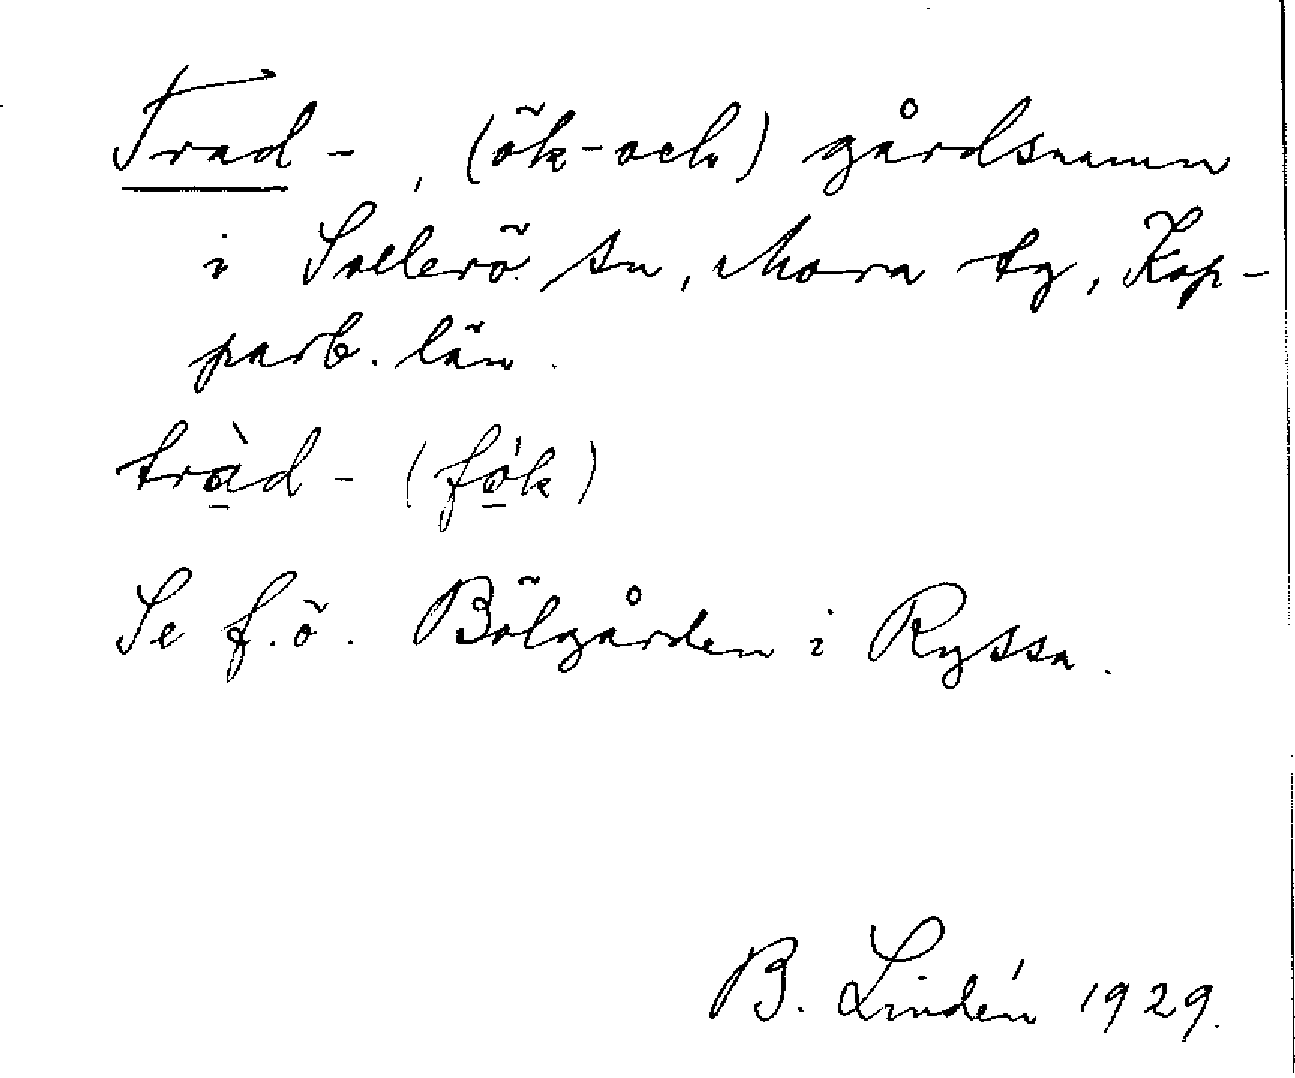 Trad-, (ök- och) gårdsnamn
i Sollerö sn, Mora tg, Kop-
parb. län.
tràd- (fók)
Se f.ö. Bölgården i Ryssa.
B. Lindén 1929.